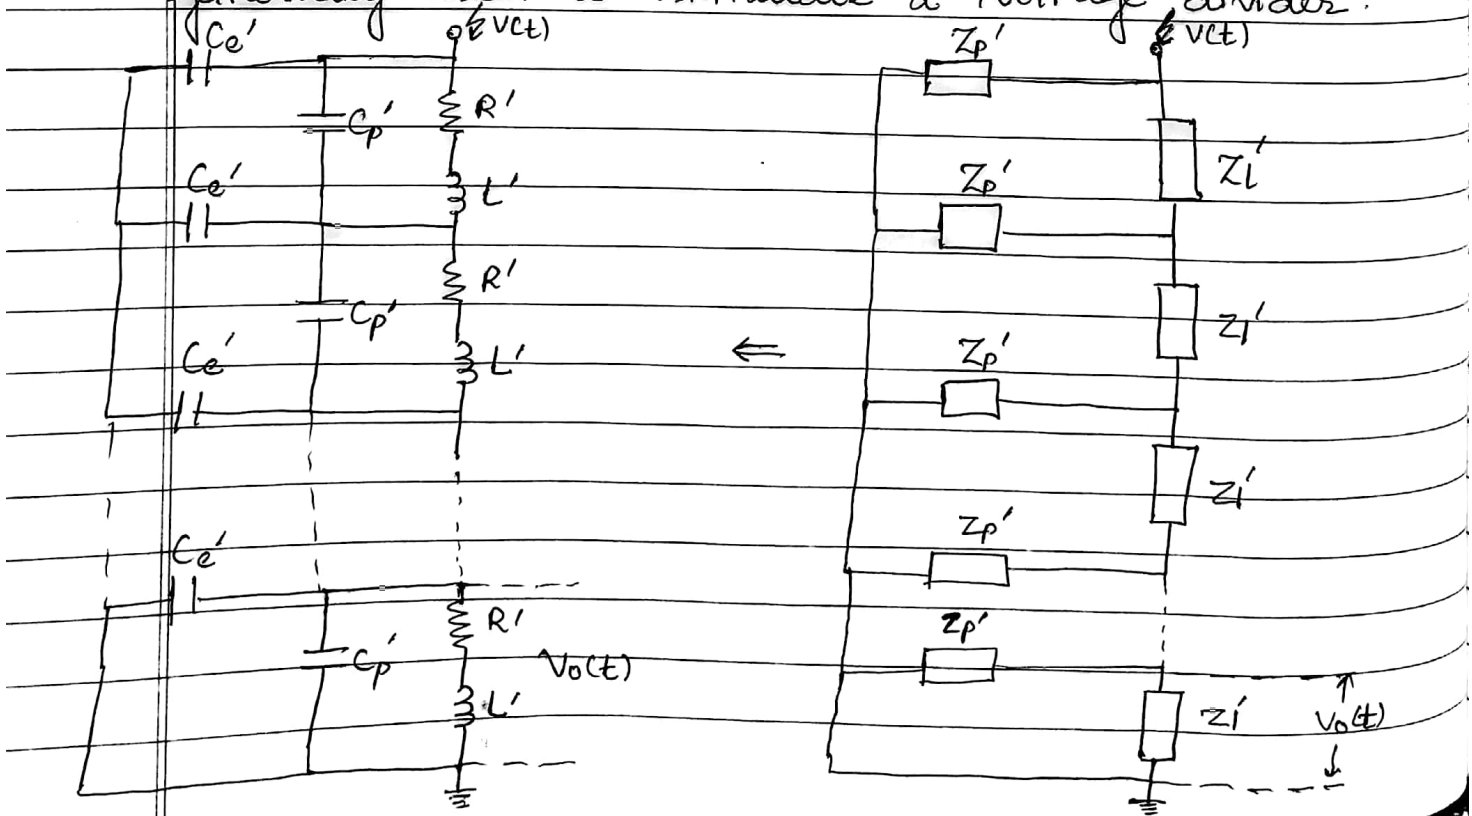 a voltage divider.
Ce'
V(t)
Cp'
R'
L'
Ce'
R'
Cp'
L'
Ce'
Ce'
R'
Cp'
L'
Vo(t)
⇐
Zp'
V(t)
Z1'
Zp'
Z1'
Zp'
Z1'
Zp'
Zp'
Z1'
Vo(t)